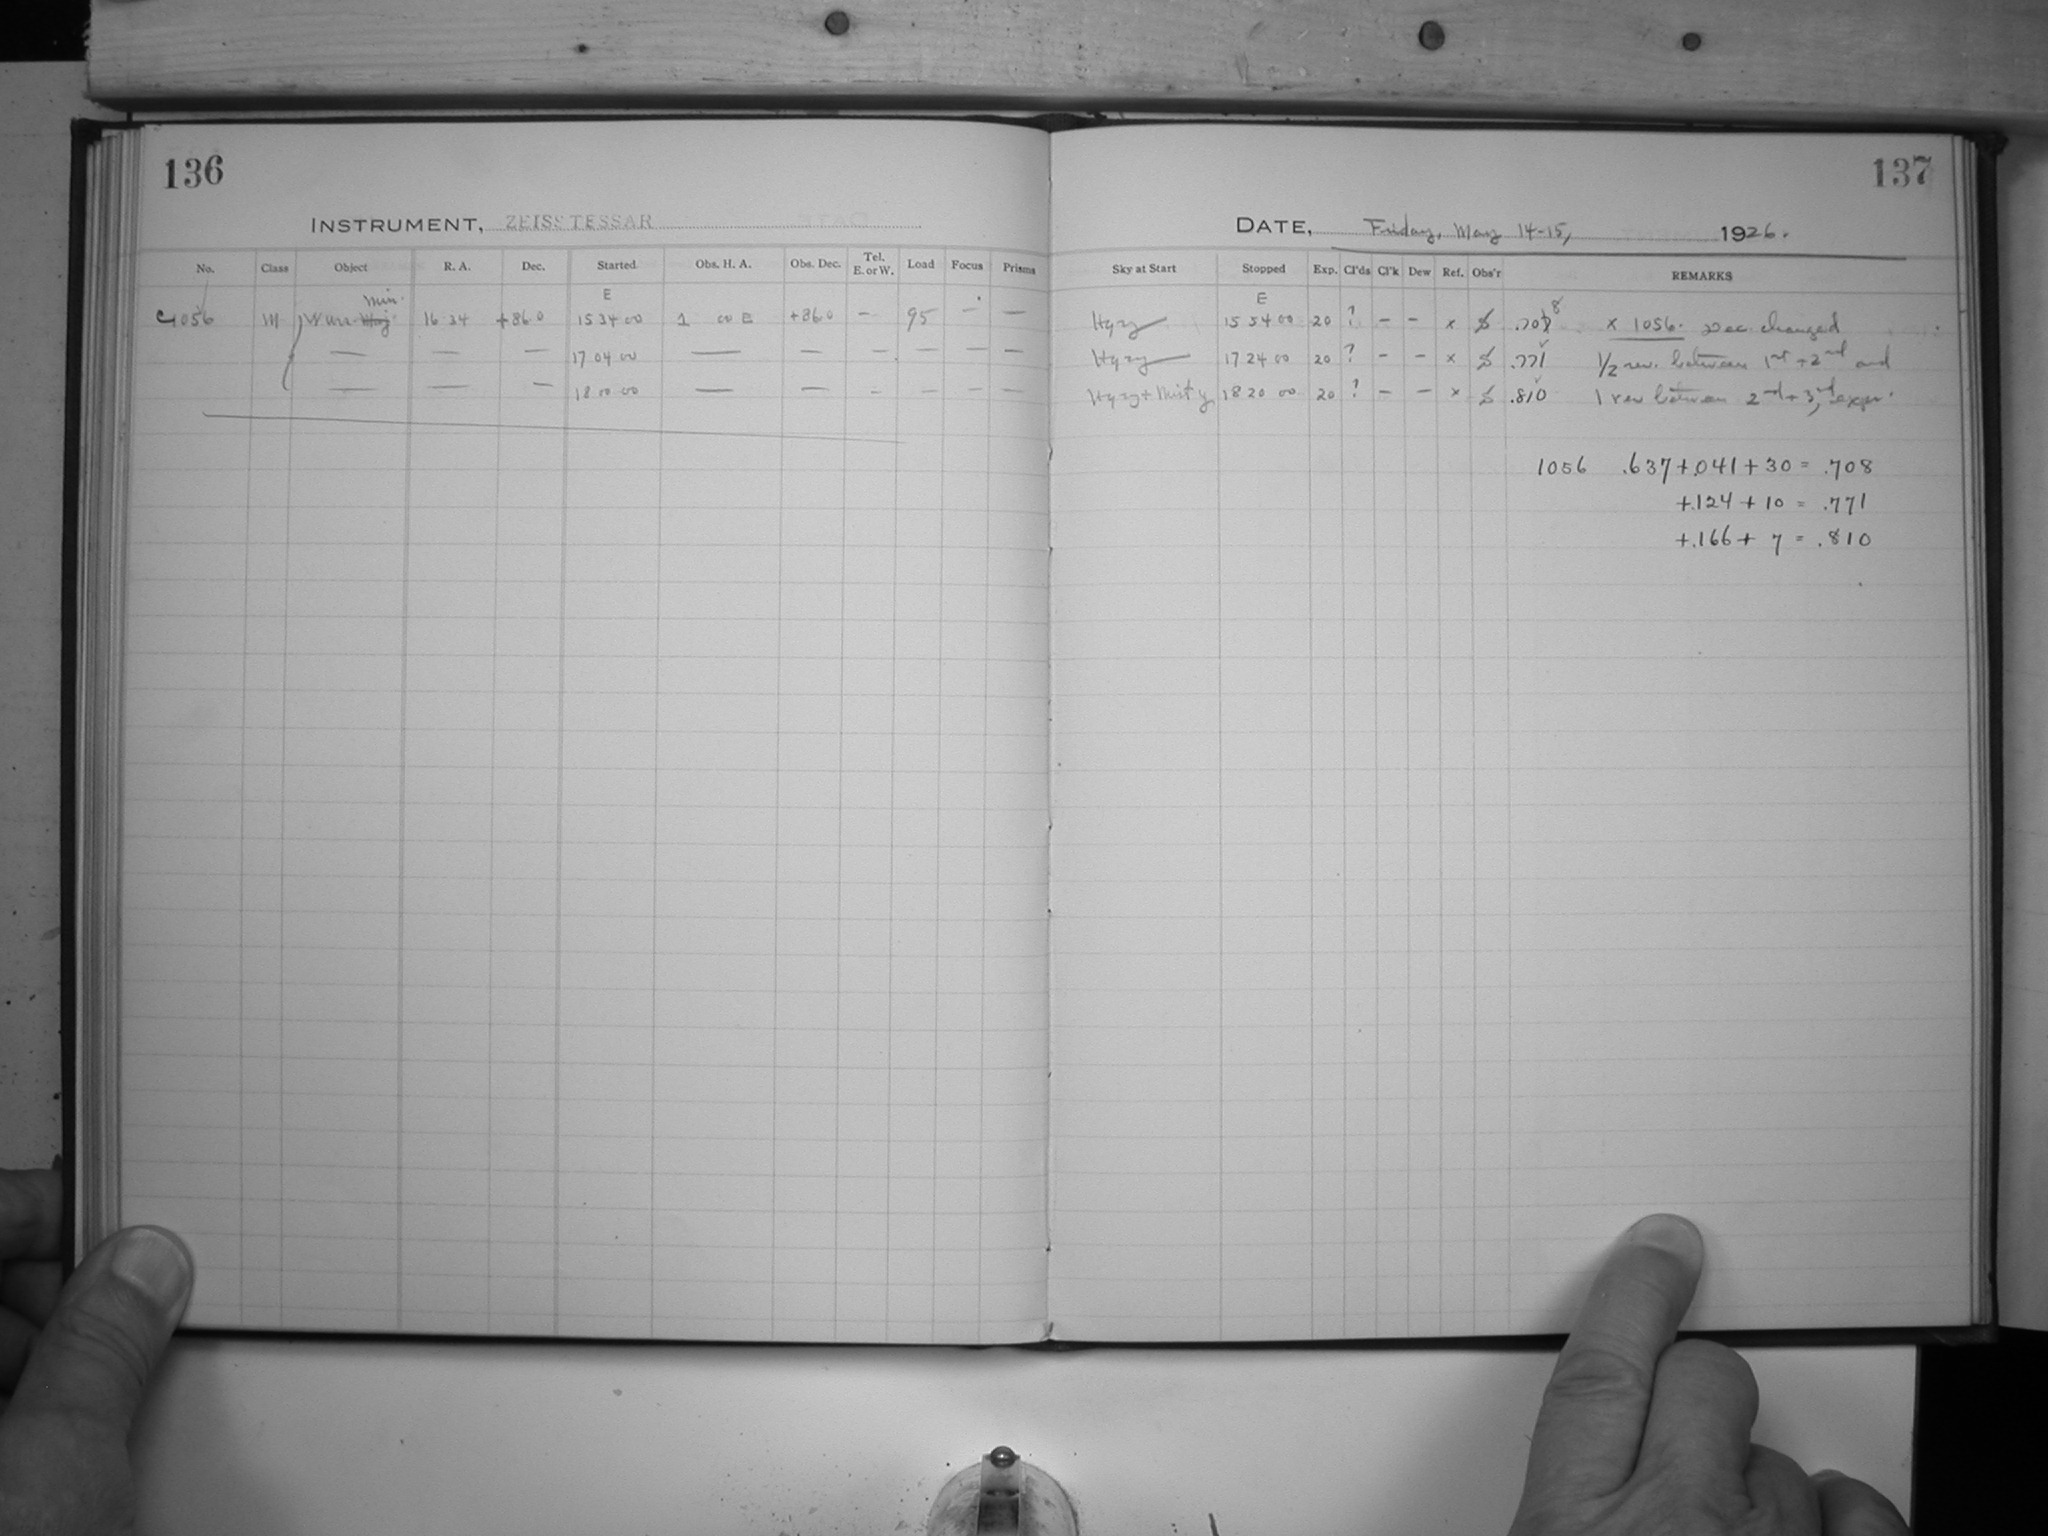 136
INSTRUMENT, ZEISS TESSAR
No. Class Object R. A. Dec. Started Obs. H. A. Obs. Dec. Tel. E. or W. Load Focus Prisms
E
Min.
1056 M W Urs. Maj. 16 34 +86.0 15 34 00 1 00 E +86.0 — 95 — —
— — — 17 04 00 — — — — — —
— — — 18 00 00 — — — — — —
137
DATE, Friday, May 14-15, 1926.
Sky at Start Stopped Exp. Cl'ds Cl'k Dew Ref. Obs'r REMARKS
E
Hazy 15 54 00 20 ? — — x .708 x 1056. Dec. changed
Hazy 17 24 00 20 ? — — x .771 1/2 rev. between 1st + 2nd and
Hazy + Misty 18 20 00 20 ? — — x .810 1 rev between 2nd + 3rd expos.
1056 .637+.041+30 = .708
+.124 + 10 = .771
+.166 + 7 = .810